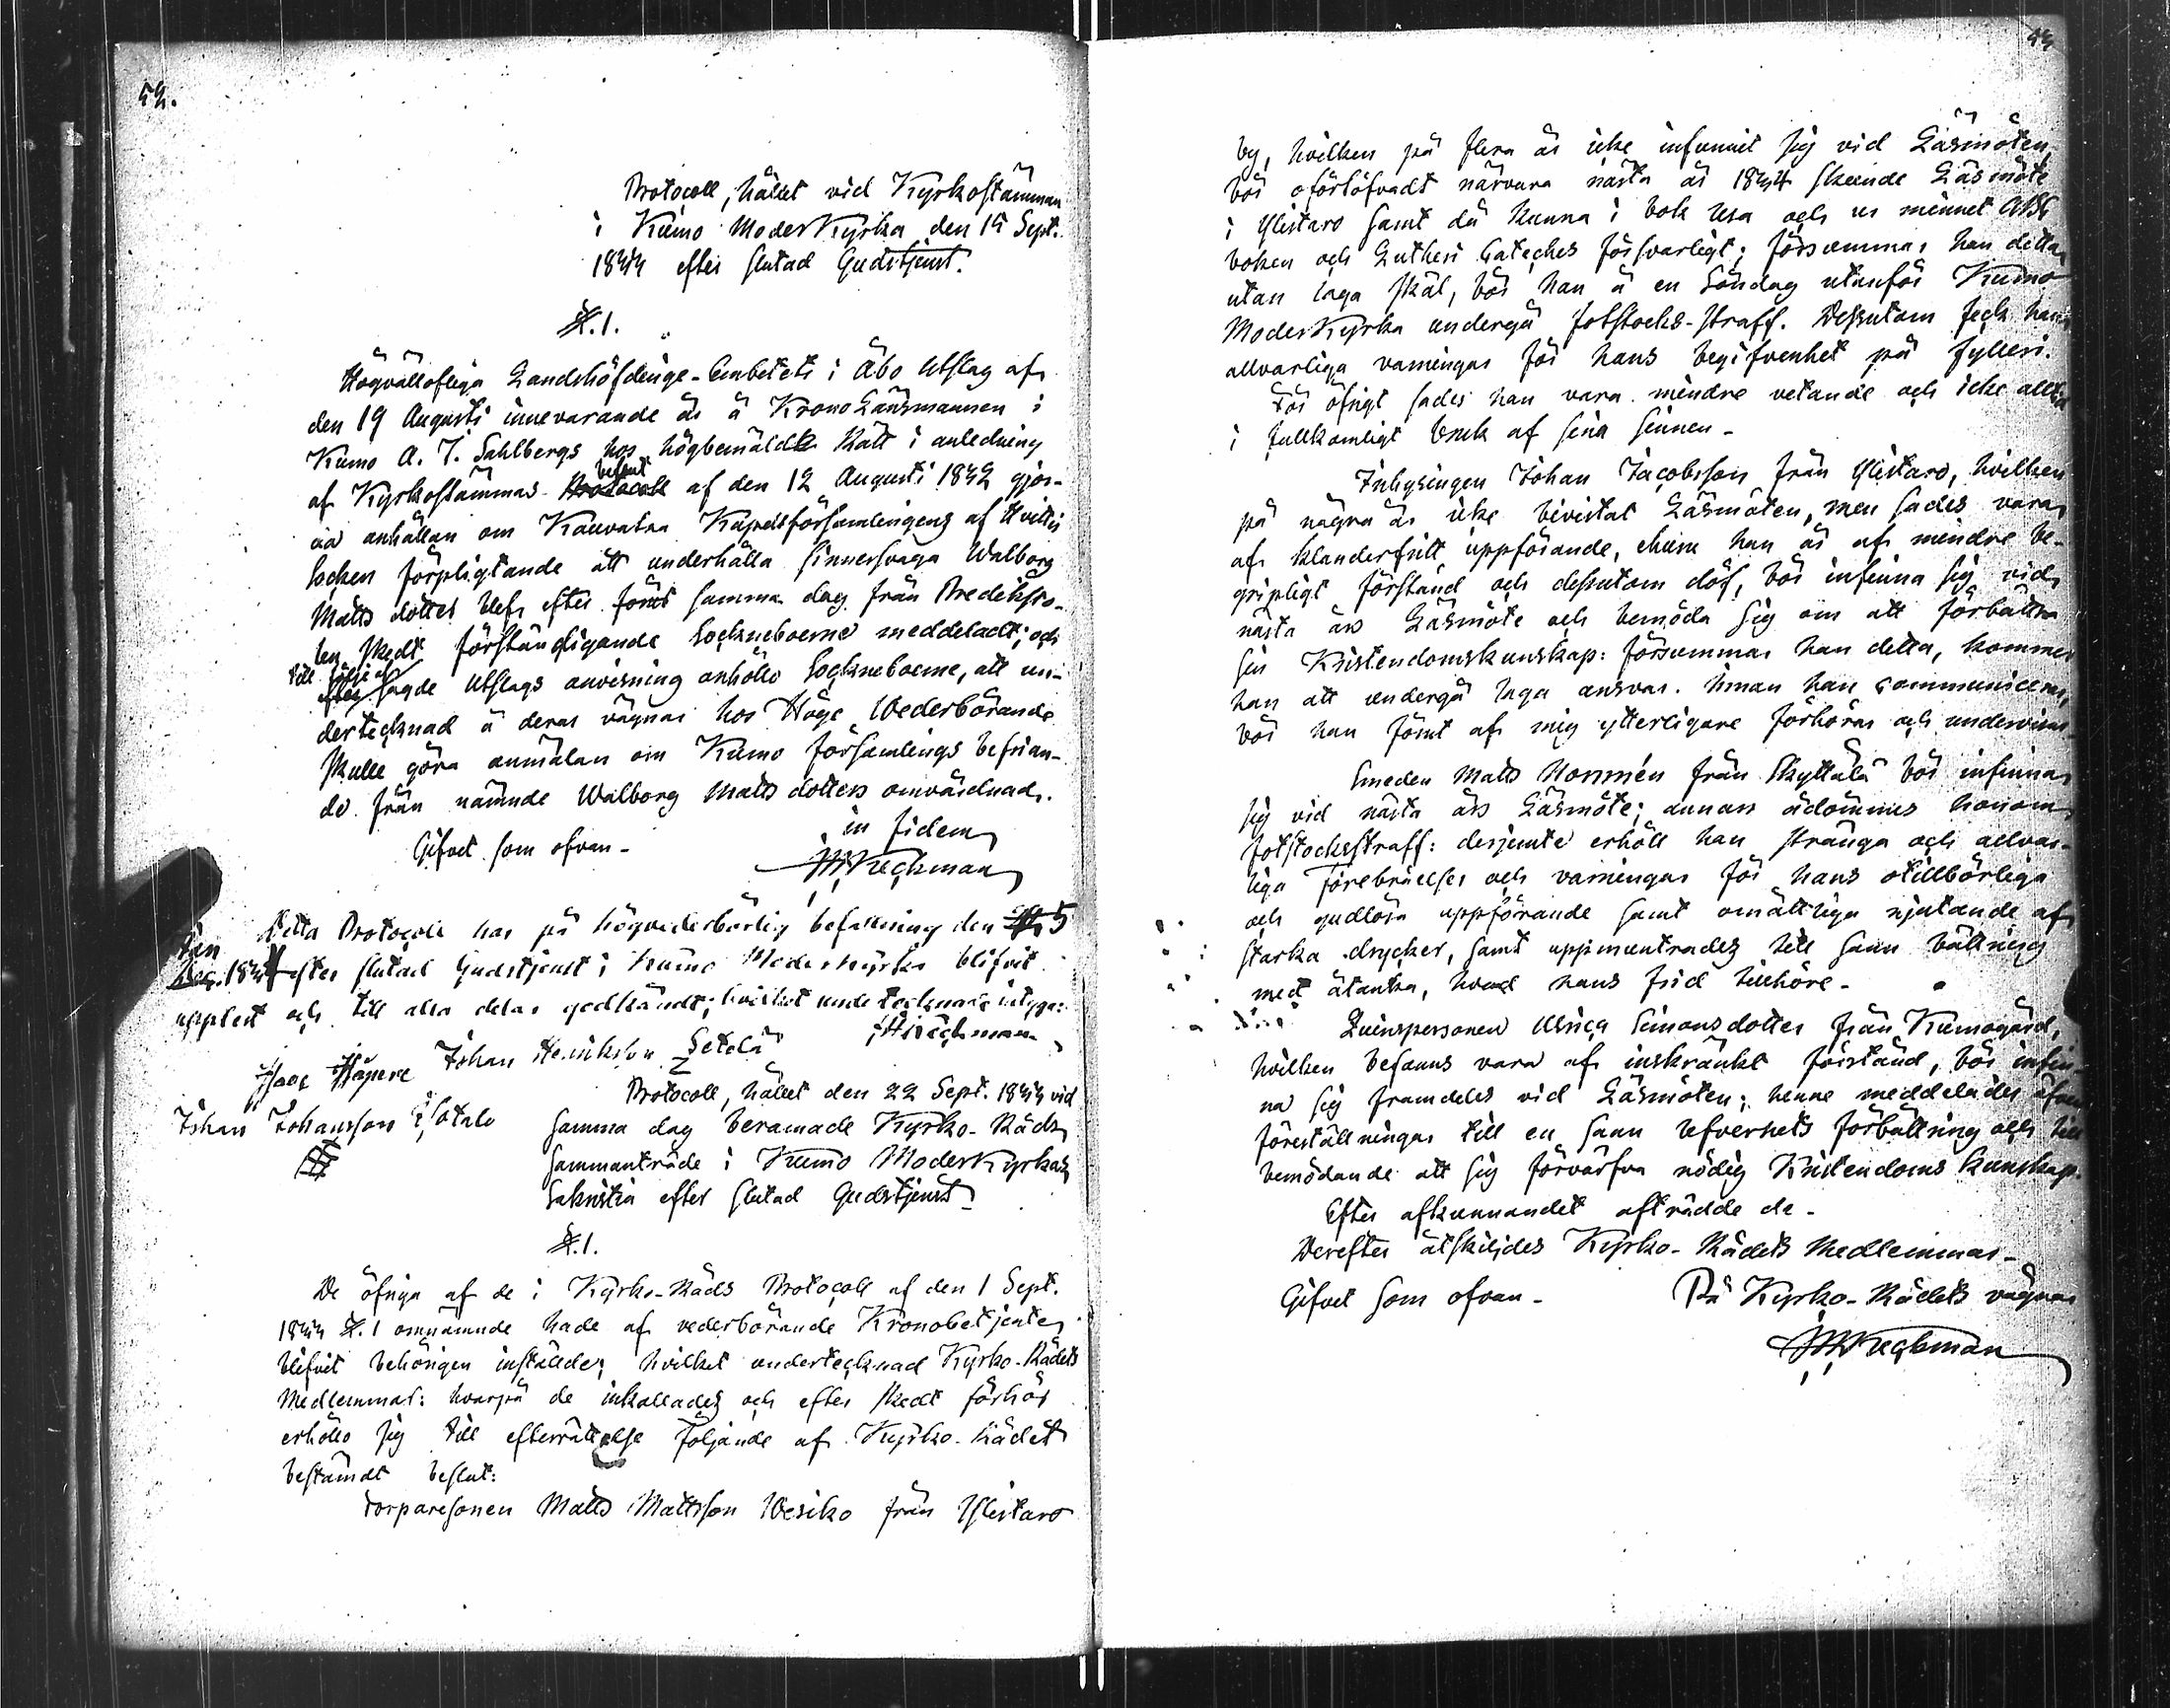 52.
Protocoll, hållet vid Kyrkostämman
i Kumo ModerKyrka den 15 Sept.
1844 efter slutad Gudstjenst.
§.1.
Högvällofliga Landshöfdinge-Embetets i Åbo Utslag af
den 19 Augusti innevarande år å KronoLänsmannen i
Kumo A. J. Sahlbergs hos högbemälde Rätt i anledning
af Kyrkostämmas- Protocoll beslut af den 12 Augusti 1842 gjor-
da anhållan om Kauvatsa Kapellsförsamlingens af Hvittis
Socken förpligtande att underhålla sinnessvaga Walborg
Matts dotter blef efter förut samma dag från Prediksto-
len skedt förständigande Sockneboerne meddeladt; och
till följe af
efter sagde Utslags anvisning anhöllo Sockneboerne, att un-
dertecknad å deras vägnar hos Höge Wederbörande
skulle göra anmälan om Kumo församlings befrian-
de från nämnde Walborg Matts dotters omvårdnad.
Gifvet som ofvan-
in fidem
Detta Protocoll har på högvederbörlig befallning den 5
Jan
Dec. 1845 efter slutad Gudstjenst i Kumo Moderkyrka blifvit
uppläst och till alla delar godkändt; hvilket undertecknade intyga:
Johan Henriksson Setälä
Johan Johansson
Protocoll, hållet den 22 Sept. 1844 vid
samma dag beramade Kyrko-Råds
sammanträde i Kumo ModerKyrkas
Sakristia efter slutad Gudstjenst
§.1.
De öfriga af de i Kyrko-Råds Protocoll af den 1 Sept.
1844 §.1 omnämnde hade af vederbörande Kronobetjente
blifvit behörigen inställde, hvilket undertecknad Kyrko-Rådets
Medlemmar: hvarpå de inkallades och efter skedt förhör
erhöllo sig till efterrättelse följande af Kyrko-Rådet
bestämdt beslut:
Torparesonen Matts Mattsson Wesiko från Ylistaro
by, hvilken på flera år icke infunnit sig vid Läsmöten,
bör oförtöfvadt närvara nästa år 1845 skeende Läsmöte
i Ylistaro samt då kunna i bok läsa och ur minnet ABC
boken och Lutheri Cateches försvarligt; försummar han detta
utan laga skäl, bör han å en Söndag utanför Kumo
ModerKyrka undergå fotstocks-straff. Dessutom feck han
allvarliga varningar för hans begifvenhet på fylleri.
För öfrigt sades han vara mindre vetande och icke alltid
i fullkomligt bruk af sina sinnen-
Inhysingen Johan Jacobsson från Ylistaro, hvilken
på några år icke bivistat Läsmöten, men sades vara
af klanderfritt uppförande, ehuru han är af mindre be-
gripligt förstånd och dessutom döf, bör infinna sig vid
nästa års Läsmöte och bemöda sig om att förbättra
sin Kristendomskunskap: försummar han detta, kommer
han att undergå laga ansvar. Innan han communicerar,
bör han förut af mig ytterligare förhöras och undervisas-
Smeden Matts Norrmén från Skyttälä bör infinna
sig vid nästa års Läsmöte; annars ådömmes honom
fotstocksstraff: derjemte erhöll han stränga och allvar-
liga förebråelser och varningar för hans otillbörliga
och gudlösa uppförande samt omåttliga njutande af
starka drycker, samt uppmuntrades till sann bättring
med åtanka, hvad hans frid tillhöre-
Qvinspersonen Ulrica Simonsdotter från Kumogård,
hvilken befanns vara af inskränkt förstånd, bör infin-
na sig framdeles vid Läsmöten; henne meddelades äfven
föreställningar till en sann lefvernets förbättring och till
bemödande att sig förvärfva nödig Kristendoms kunskap.
Efter afkunnandet afträdde de-
Derefter åtskiljdes Kyrko-Rådets Medlemmar-
Gifvet som ofvan-
På Kyrko-Rådets vägnar